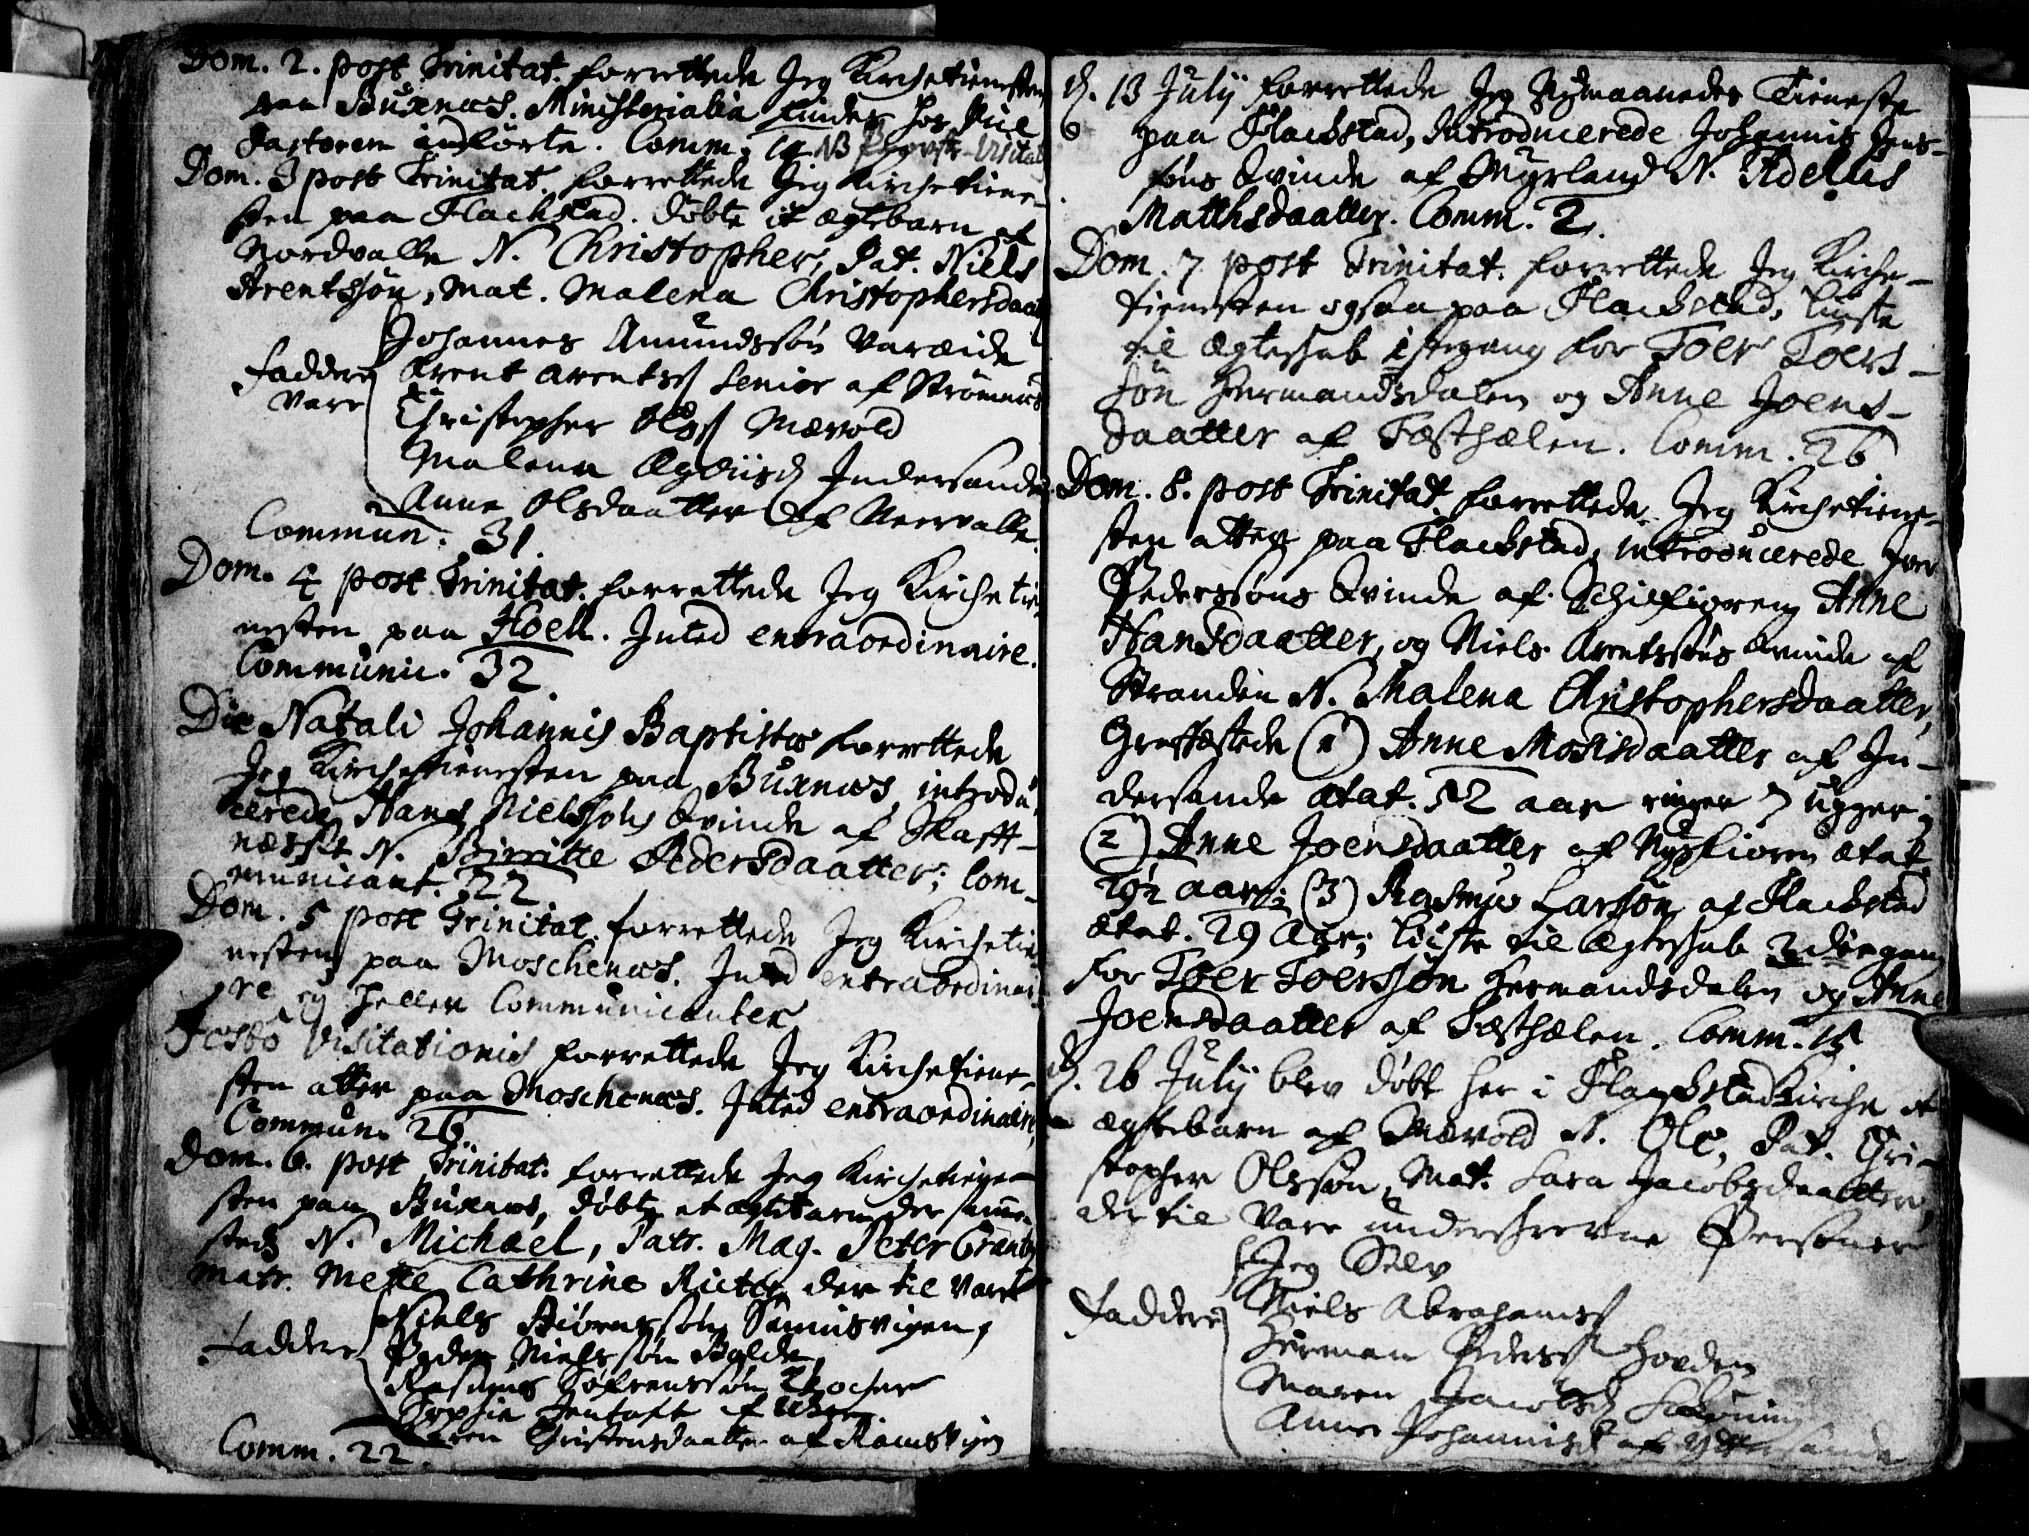 Dom. 2. post Trinitat. forrettede Jeg Kirchetienesten
paa Buxnæs. Ministerialia findes hos
Pastorem indførte. Comm. NB Visitat
Dom. 3 post Trinitat. forrettede Jeg Kirchetiene-
sten paa Flackstad. døbte it ægtebarn af
Nordvalle N. Christopher, Pat. Niels
Arentssøn, Mat. Malena Christophersdaatt
Johannes Amundssøn Vareide
Faddere Arent Arents Senior af Strømnæs
Vare Christopher Ols Mærvold
Malena Indersande
Anne Olsdaatter af Neervalle
Commun. 31.
Dom. 4 post Trinitat. forrettede Jeg Kirchetie-
nesten paa Hoell. Inted extraordinaire.
Communic. 32.
Die Natali Johannis Baptistæ forrettede
Jeg Kirchetienesten paa Buxnæs, introdu-
cerede Hans Nielssøns Qvinde af Skafft-
næsset N. Birritte Pedersdaatter; Com-
municant. 22
Dom. 5 post Trinitat. forrettede Jeg Kirchetie-
nesten paa Moschenæs. Inted extraordinai-
re og heller Communicanter
Festo Visitationis forrettede Jeg Kirchetiene-
sten atter paa Moschenæs. Inted extraordinaire,
Commun. 26.
Dom. 6. post Trinitat. forrettede Jeg Kirchetiene-
sten paa Buxnæs, døbte et ægtebarn der samme-
steds N. Michael, Patr. Mag. Peter
Matr. Mette Cathrine Ricter der til vare
Niels Biørnssøn
Faddere Peder Nielssøn
Rasmus
Sophia Jentoft af
Karen Christensdaatter af Ramsvigen
Comm. 22.
d. 13 July forrettede Jeg Nymaanedes Tieneste
paa Flackstad, Introducerede Johannis Jens-
søns Qvinde af Myrland N.
Matthsdaatter. Comm. 2.
Dom. 7. post Trinitat. forrettede Jeg Kirche-
tienesten ogsaa paa Flackstad, liuste
til Ægteskab 1ste gang for Toer Toers-
søn Hermandsdalen og Anne Joens-
daatter af Festhælen. Comm. 26
Dom. 8. post Trinitat. forrettede Jeg Kirchetiene-
sten atter paa Flackstad, introducerede Iver
Pederssøns Qvinde af Anne
Hansdaatter, og Niels Arentssøns Qvinde af
Stranden N. Malena Christophersdaatter,
Græffæstede (1) Anne Mosisdaatter af In-
dersande ætat. 52 aar ringer 7 ugger;
(2) Anne Joensdaatter af Nysfioren ætat.
aar; (3) Rasmus Larssøn af Flackstad
ætat. 29 Aar; liuste til Ægteskab 2den gang
for Toer Toerssøn Hermandsdalen og Anne
Joensdaatter af Festhælen. Comm. 15
d. 26 July blev døbt her i Flackstad Kirche et
ægtebarn af Mærvold N. Ole, Pat. Chri-
stopher Olssøn, Mat. Sara Jacobsdaatter,
der til vare underskrevne Personer
Jeg Selv
Faddere Niels Abrahams
Herman Peders Hovden
Maren Jacobsd
Anne Johannisd af Yttersande